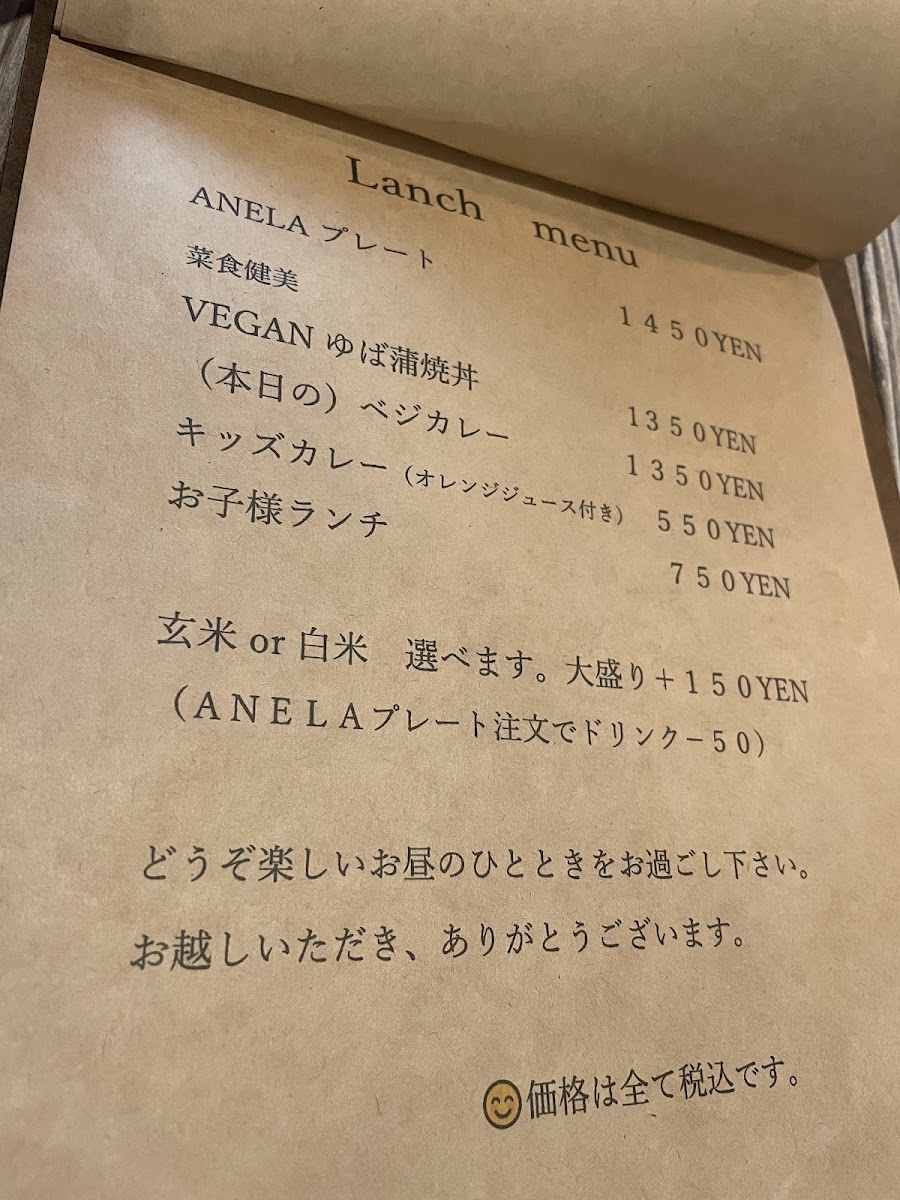 Lanch menu
ANELA プレート 1450YEN
菜食健美
VEGAN ゆば蒲焼丼 1350YEN
（本日の）ベジカレー 1350YEN
キッズカレー（オレンジジュース付き） 550YEN
お子様ランチ 750YEN
玄米 or 白米　選べます。大盛り＋150YEN
（ANELAプレート注文でドリンク－50）
どうぞ楽しいお昼のひとときをお過ごし下さい。
お越しいただき、ありがとうございます。
😊価格は全て税込です。